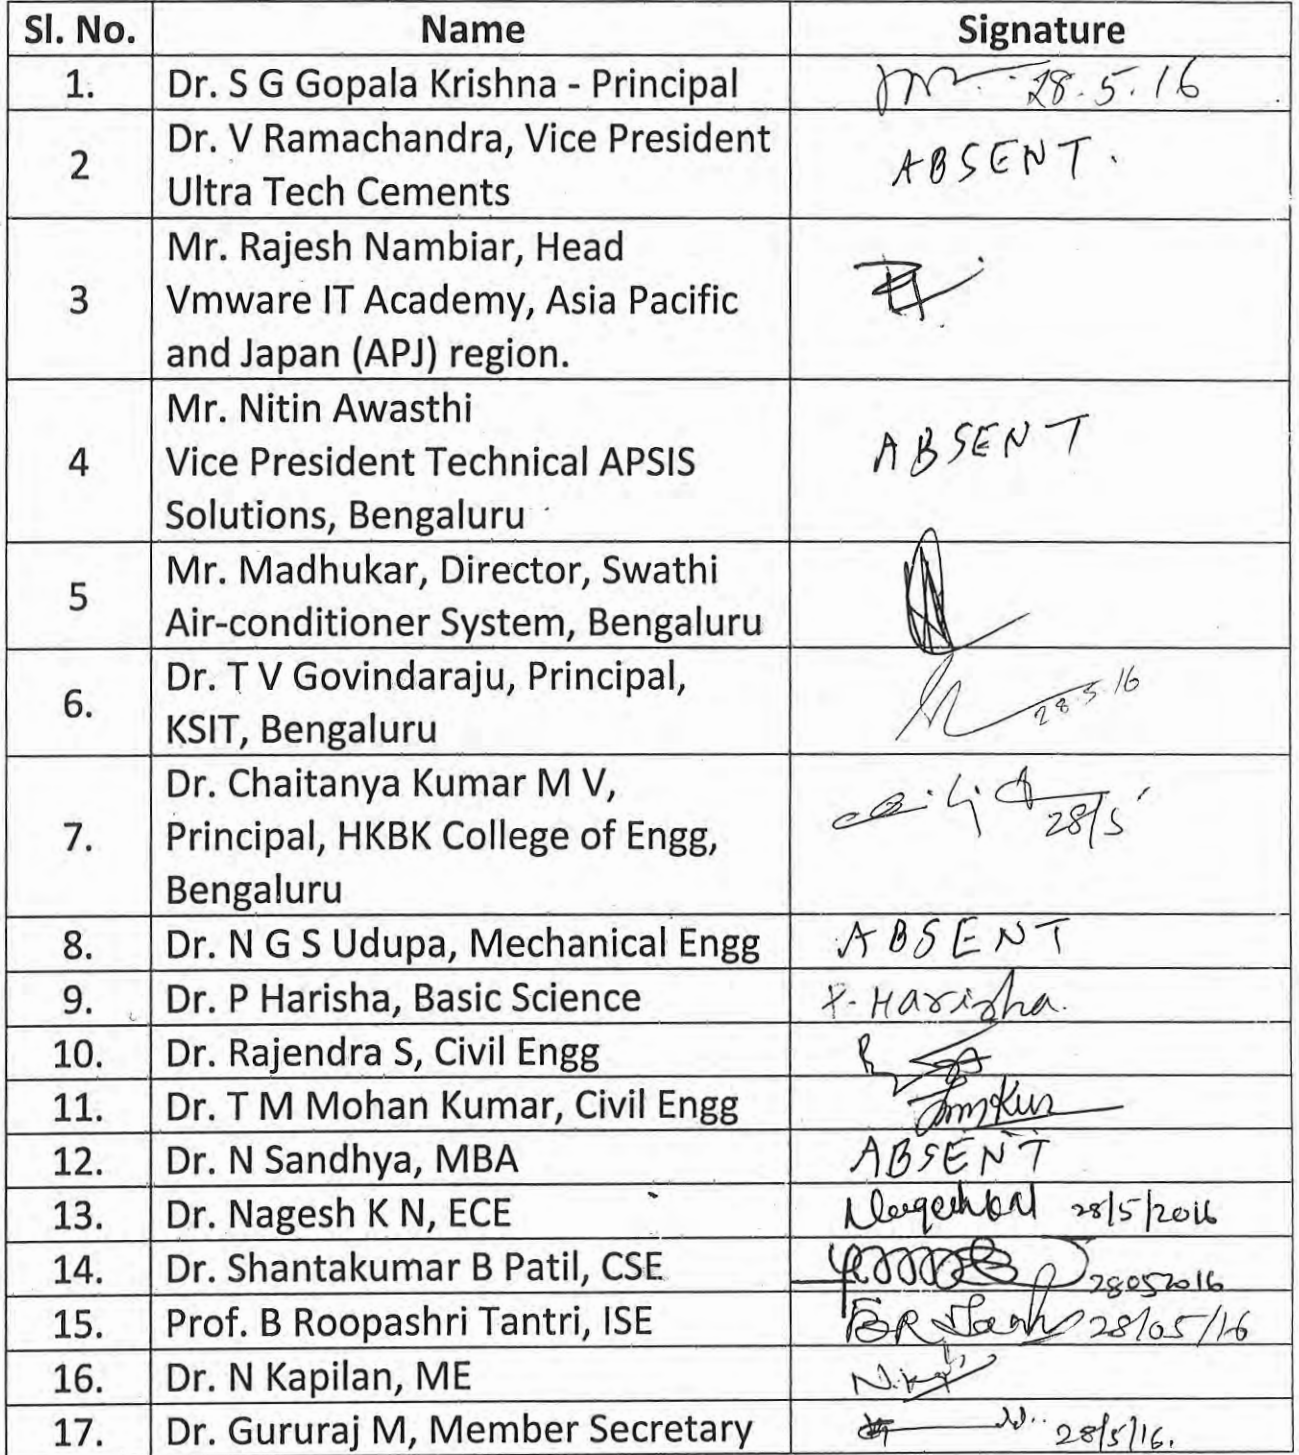 Sl. No. Name Signature
1. Dr. S G Gopala Krishna - Principal 28.5.16
2 Dr. V Ramachandra, Vice President
Ultra Tech Cements ABSENT.
3 Mr. Rajesh Nambiar, Head
Vmware IT Academy, Asia Pacific
and Japan (APJ) region.
4 Mr. Nitin Awasthi
Vice President Technical APSIS
Solutions, Bengaluru ABSENT
5 Mr. Madhukar, Director, Swathi
Air-conditioner System, Bengaluru
6. Dr. T V Govindaraju, Principal,
KSIT, Bengaluru 28.5.16
7. Dr. Chaitanya Kumar M V,
Principal, HKBK College of Engg,
Bengaluru 28/5
8. Dr. N G S Udupa, Mechanical Engg ABSENT
9. Dr. P Harisha, Basic Science P. Harisha.
10. Dr. Rajendra S, Civil Engg
11. Dr. T M Mohan Kumar, Civil Engg
12. Dr. N Sandhya, MBA ABSENT
13. Dr. Nagesh K N, ECE 28/5/2016
14. Dr. Shantakumar B Patil, CSE 28052016
15. Prof. B Roopashri Tantri, ISE 28/05/16
16. Dr. N Kapilan, ME
17. Dr. Gururaj M, Member Secretary 28/5/16.